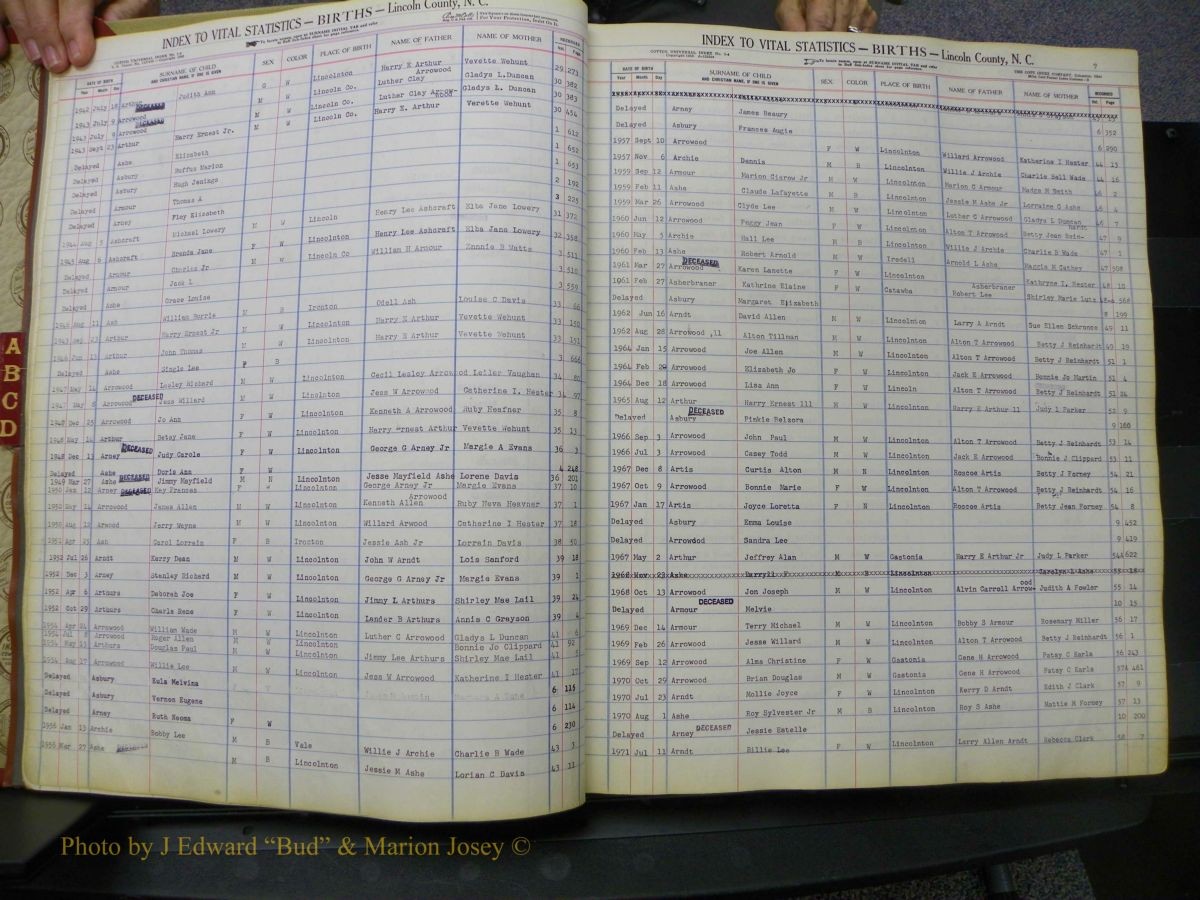 INDEX TO VITAL STATISTICS — BIRTHS — Lincoln County, N. C.
DATE OF BIRTH
Year Month Day
SURNAME OF CHILD
AND CHRISTIAN NAME, IF ONE IS GIVEN
SEX
COLOR
PLACE OF BIRTH
NAME OF FATHER
NAME OF MOTHER
RECORDED
Vol. Page
1942 July 18 Arthur Judith Ann Lincolnton Harry E Arthur Vevette Wehunt 29 273
1943 July 9 Arrowood DECEASED Lincoln Co. Luther Clay Arrowood Gladys L.Duncan 30 382
1943 July 9 Arrowood DECEASED Lincoln Co. Luther Clay Gladys L. Duncan 30 383
1943 Sept 23 Arthur Harry Ernest Jr. M W Lincoln Co. Harry E. Arthur Verette Wehunt 30 454
Delayed Ashe Elizabeth 1 612
Delayed Asbury Ruffus Marion 1 652
Delayed Asbury Hugh Jenings 1 653
Delayed Armour Thomas A 2 192
Delayed Arney Floy Elizabeth 3 225
1944 Aug 5 Ashcraft Michael Lowery M W Lincoln Henry Lee Ashcraft Elba Jane Lowery 31 372
1945 Aug 6 Ashcraft Brenda Jane F W Lincolnton Henry Lee Ashcraft Elba Jane Lowery 32 358
Delayed Armour Charles Jr M W Lincoln Co William H Armour Ennnie B Watts 3 511
Delayed Armour Jack L 3 510
Delayed Ashe Grace Louise 3 559
1946 Aug 11 Ash William Burris M B Ironton Odell Ash Louise C Davis 33 66
1943 Sep 23 Arthur Harry Ernest Jr M W Lincolnton Harry E Arthur Vevette Wehunt 33 150
1946 Jun 13 Arthur John Thomas M W Lincolnton Harry E Arthur Vevette Wehunt 33 151
Delayed Ashe Single Lee 3 666
1947 May 14 Arrowood Lesley Richard M W Lincolnton Cecil Lesley Arrowood Leiler Vaughan 34 80
1947 May 8 Arrowood DECEASED Jess Willard M W Lincolnton Jess W Arrowood Catherine I. Hester 34 97
1948 Dec 25 Arrowood Jo Ann F W Lincolnton Kenneth A Arrowood Ruby Heafner 35 8
1948 May 14 Arthur Betsy Jane F W Lincolnton Harry Ernest Arthur Vevette Wehunt 35 13
1948 Dec 13 Arney DECEASED Judy Carole F W Lincolnton George G Arney Jr Margie A Evans 36 3
Delayed Ashe Doris Ann F W 4 248
1949 Mar 27 Ashe DECEASED Jimmy Mayfield M N Lincolnton Jesse Mayfield Ashe Lorene Davis 36 201
1950 Jan 12 Arney DECEASED Key Frances F W Lincolnton George Arney Jr Margie Evans 37 10
1950 May 14 Arrowood James Allen M W Lincolnton Kenneth Allen Arrowood Ruby Neva Heavner 37 1
1950 Aug 12 Arwood Jerry Wayne M W Lincolnton Willard Arwood Catherine I Hester 37 18
1951 Apr 25 Ash Carol Lorrain F B Ironton Jessie Ash Jr Lorrain Davis 38 50
1952 Jul 26 Arndt Kerry Dean M W Lincolnton John W Arndt Lois Sanford 39 18
1952 Dec 3 Arney Stanley Richard M W Lincolnton George G Arney Jr Margie Evans 39 1
1952 Apr 6 Arthurs Deborah Joe F W Lincolnton Jimmy L Arthurs Shirley Mae Lail 39 24
1952 Oct 29 Arthurs Charla Rene F W Lincolnton Lander B Arthurs Annis C Grayson 39 4
1954 Apr 24 Arrowood William Wade M W Lincolnton Luther C Arrowood Gladys L Duncan 41 6
1954 Jul 8 Arrowood Roger Allen M W Lincolnton Bonnie Jo Clippard 41 92
1954 May 13 Arthurs Douglas Paul M W Lincolnton Jimmy Lee Arthurs Shirley Mae Lail 41 5
1954 Aug 17 Arrowood Willie Lee M W Lincolnton Jess W Arrowood Katherine I Hester 41 17
Delayed Asbury Eula Melvina 6 115
Delayed Asbury Vernon Eugene 6 114
Delayed Arney Ruth Neoma 6 230
1956 Jan 13 Archie Bobby Lee M B Vale Willie J Archie Charlie B Wade 43 3
1956 Mar 27 Ashe M B Lincolnton Jessie M Ashe Lorian C Davis 43 11
INDEX TO VITAL STATISTICS — BIRTHS — Lincoln County, N. C.
7
DATE OF BIRTH
Year Month Day
SURNAME OF CHILD
AND CHRISTIAN NAME, IF ONE IS GIVEN
SEX
COLOR
PLACE OF BIRTH
NAME OF FATHER
NAME OF MOTHER
RECORDED
Vol. Page
Delayed Arney James Beaury 6 352
Delayed Asbury Frances Augie 6 290
1957 Sept 10 Arrowood F W Lincolnton Willard Arrowood Katherine I Hester 44 15
1957 Nov 6 Archie Dennis M B Lincolnton Willie J Archie Charlie Bell Wade 44 16
1959 Sep 12 Armour Marion Cisrow Jr M W Lincolnton Marion C Armour Madge M Smith 46 2
1959 Feb 11 Ashe Claude Lafayette M B Lincolnton Jessie M Ashe Jr Lorraine C Ashe 46 4
1959 Mar 26 Arrowood Clyde Lee M W Lincolnton Luther C Arrowood Gladys L Duncan 46 7
1960 Jun 12 Arrowood Peggy Jean F W Lincolnton Alton T Arrowood Betty Jean Rein-hardt 47 9
1960 May 3 Archie Hall Lee M B Lincolnton Willie J Archie Charlie B Wade 47 1
1960 Feb 13 Ashe Robert Arnold M W Iredell Arnold L Ashe Maxxie M Cathey 47 508
1961 Mar 27 Arrowood DECEASED Karen Lanette F W Lincolnton Kathryne I. Hester 48 10
1961 Feb 27 Asherbraner Kathrine Elaine F W Catawba Asherbraner Robert Lee Shirley Marie Lutz 48-A 568
Delayed Asbury Margaret Elizabeth 8 199
1962 Jun 16 Arndt David Allen M W Lincolnton Larry A Arndt Sue Ellen Schronce 49 11
1962 Aug 28 Arrowood ,11 Alton Tillman M W Lincolnton Alton T Arrowood Betty J Reinhardt 49 19
1964 Jan 15 Arrowood Joe Allen M W Lincolnton Alton T Arrowood Betty J Reinhardt 51 1
1964 Feb 29 Arrowood Elizabeth Jo F W Lincolnton Jack E Arrowood Bonnie Jo Martin 51 4
1964 Dec 18 Arrowood Lisa Ann F W Lincoln Alton T Arrowood Betty J Reinhardt 51 24
1965 Aug 12 Arthur Harry Ernest 111 M W Lincolnton Harry E Arthur 11 Judy L Parker 52 9
Delayed Asbury DECEASED Pinkie Belzora 9 160
1966 Sep 3 Arrowood John Paul M W Lincolnton Alton T Arrowood Betty J Reinhardt 53 14
1966 Jul 3 Arrowood Casey Todd M W Lincolnton Jack E Arrowood Bonnie J Clippard 53 11
1967 Dec 8 Artis Curtis Alton M N Lincolnton Roscoe Artis Betty J Forney 54 21
1967 Oct 9 Arrowood Bonnie Marie F W Lincolnton Alton T Arrowood Betty J Reinhardt 54 16
1967 Jan 17 Artis Joyce Loretta F N Lincolnton Roscoe Artis Betty Jean Forney 54 8
Delayed Asbury Emma Louise 9 452
Delayed Arrowood Sandra Lee 9 419
1967 May 2 Arthur Jeffrey Alan M W Gastonia Harry E Arthur Jr Judy L Parker 54A 622
1968 Nov 23 Ashe Darryll F M B Lincolnton Carolyn L Ashe 55 18
1968 Oct 13 Arrowood Jon Joseph M W Lincolnton Alvin Carroll Arrowood Judith A Fowler 55 14
Delayed Armour DECEASED Melvie 10 15
1969 Dec 14 Armour Terry Michael M W Lincolnton Bobby S Armour Rosemary Miller 56 17
1969 Feb 26 Arrowood Jesse Willard M W Lincolnton Alton T Arrowood Betty J Reinhardt 56 1
1969 Sep 12 Arrowood Alma Christine F W Gastonia Gene H Arrowood Patsy C Earls 56 243
1970 Oct 29 Arrowood Brian Douglas M W Gastonia Gene H Arrowood Patsy C Earls 57A 461
1970 Jul 23 Arndt Mollie Joyce F W Lincolnton Kerry D Arndt Edith J Clark 57 9
1970 Aug 1 Ashe Roy Sylvester Jr M B Lincolnton Roy S Ashe Mattie M Forney 57 13
Delayed Arney DECEASED Jessie Estelle 10 200
1971 Jul 11 Arndt Billie Lee F W Lincolnton Larry Allen Arndt Rebecca Clark 58 7
A
B
C
D
Photo by J Edward “Bud” & Marion Josey ©